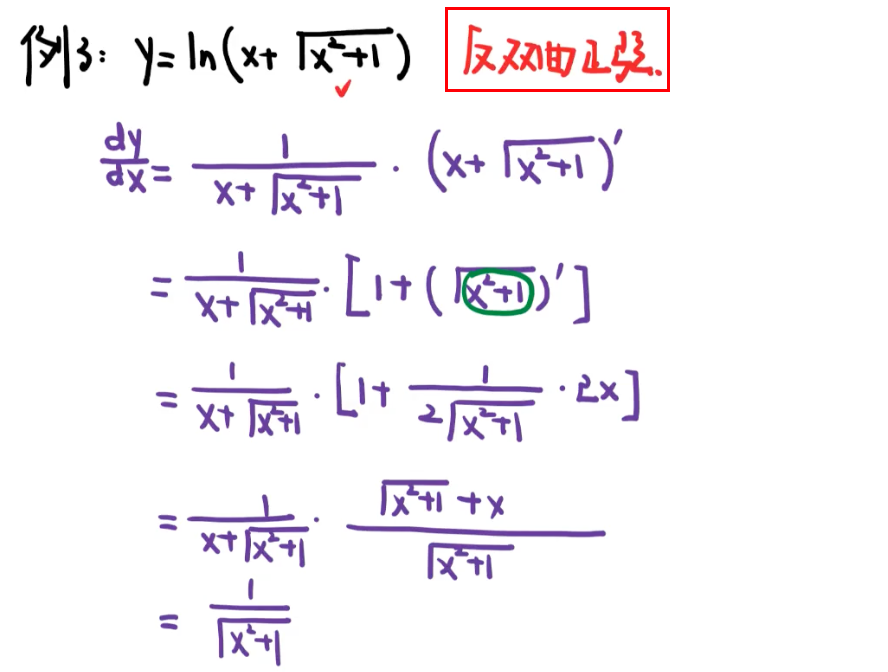 例3: y=ln(x+√(x²+1)) 反双曲正弦.
dy/dx = 1/(x+√(x²+1)) · (x+√(x²+1))′
= 1/(x+√(x²+1)) · [1+(√(x²+1))′]
= 1/(x+√(x²+1)) · [1+ 1/(2√(x²+1)) · 2x]
= 1/(x+√(x²+1)) · (√(x²+1)+x)/√(x²+1)
= 1/√(x²+1)